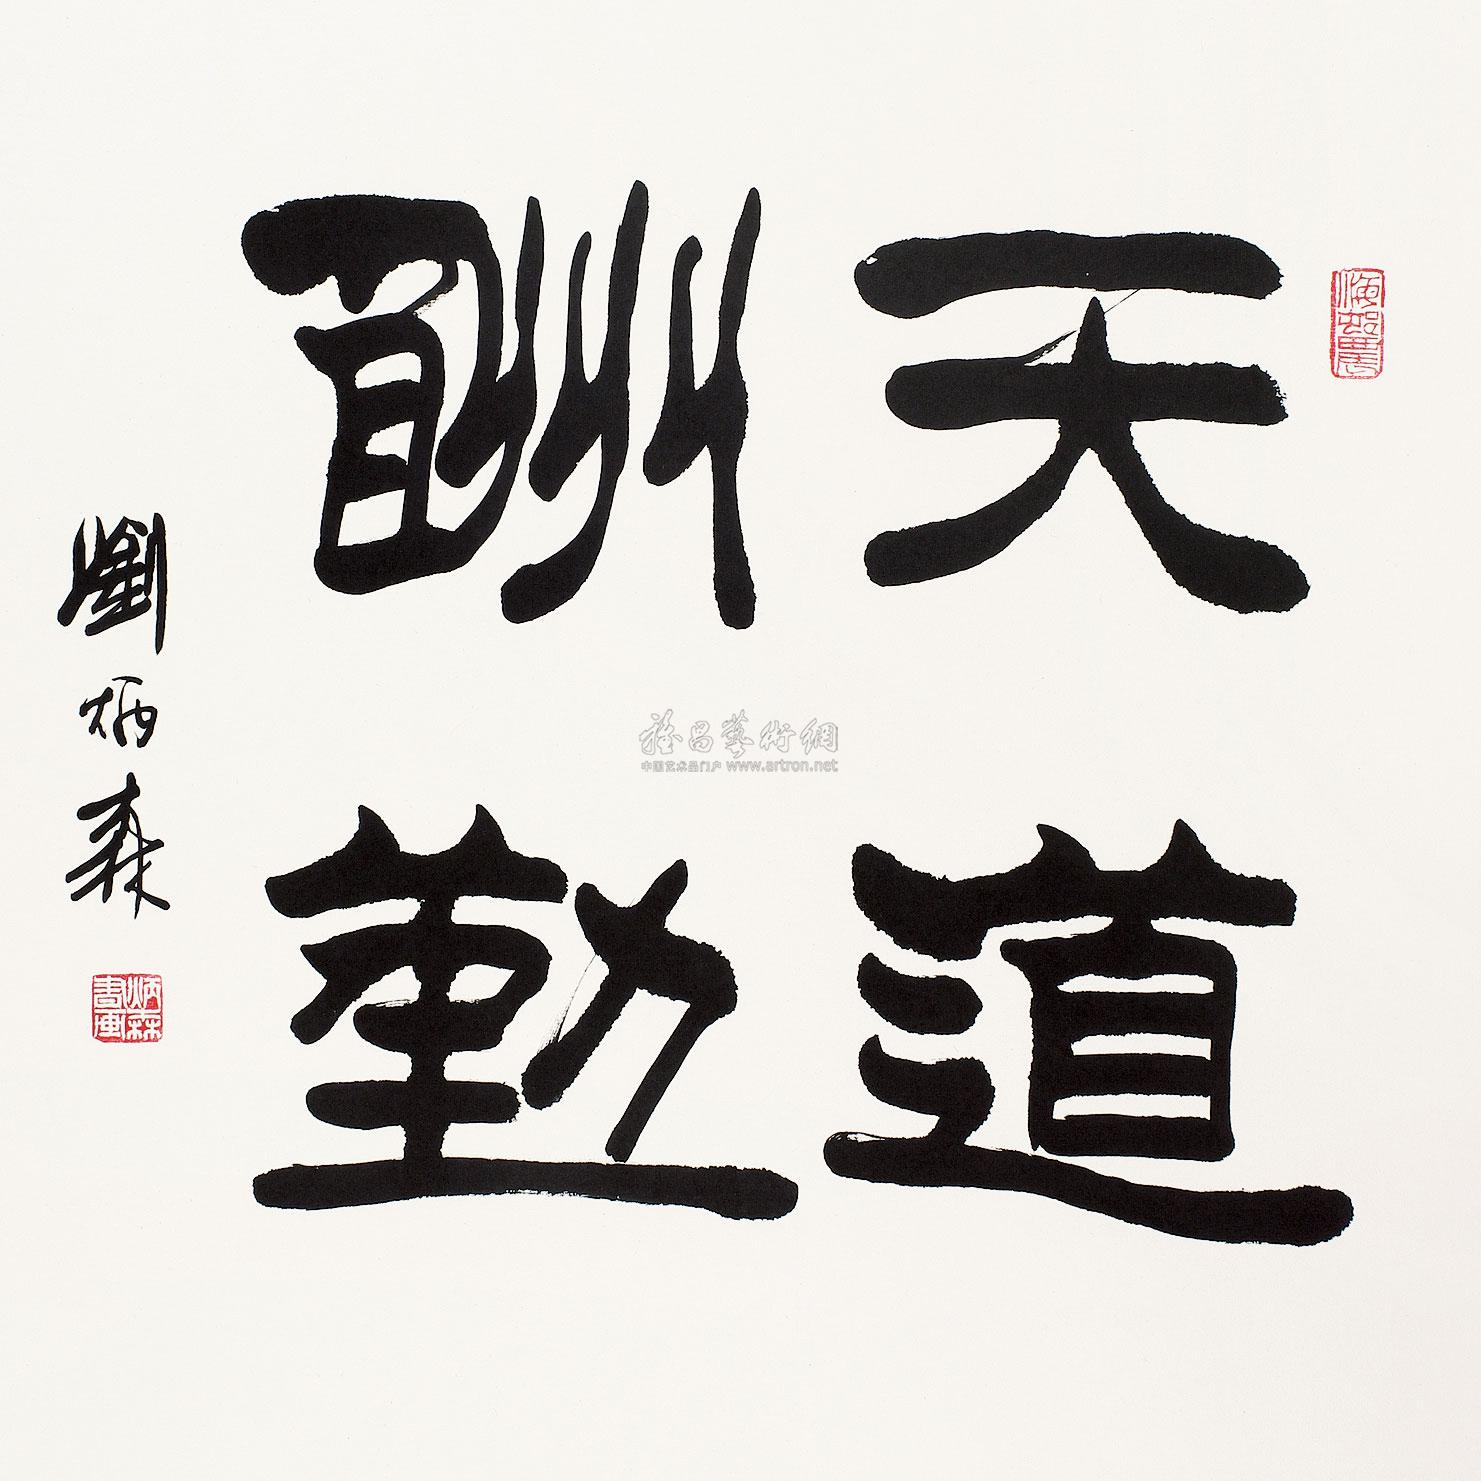 天道
酬勤
劉炳森
炳森書画
雅昌藝術網
中国艺术品门户 www.artron.net